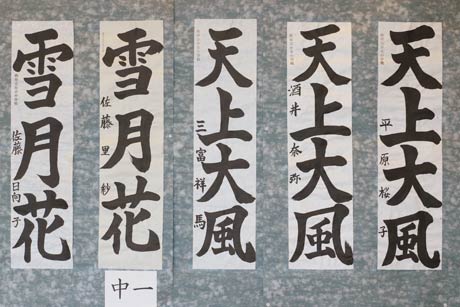 天上大風
平原桜子
天上大風
酒井
天上大風
三富祥馬
雪月花
佐藤里紗
雪月花
佐藤日向子
中一